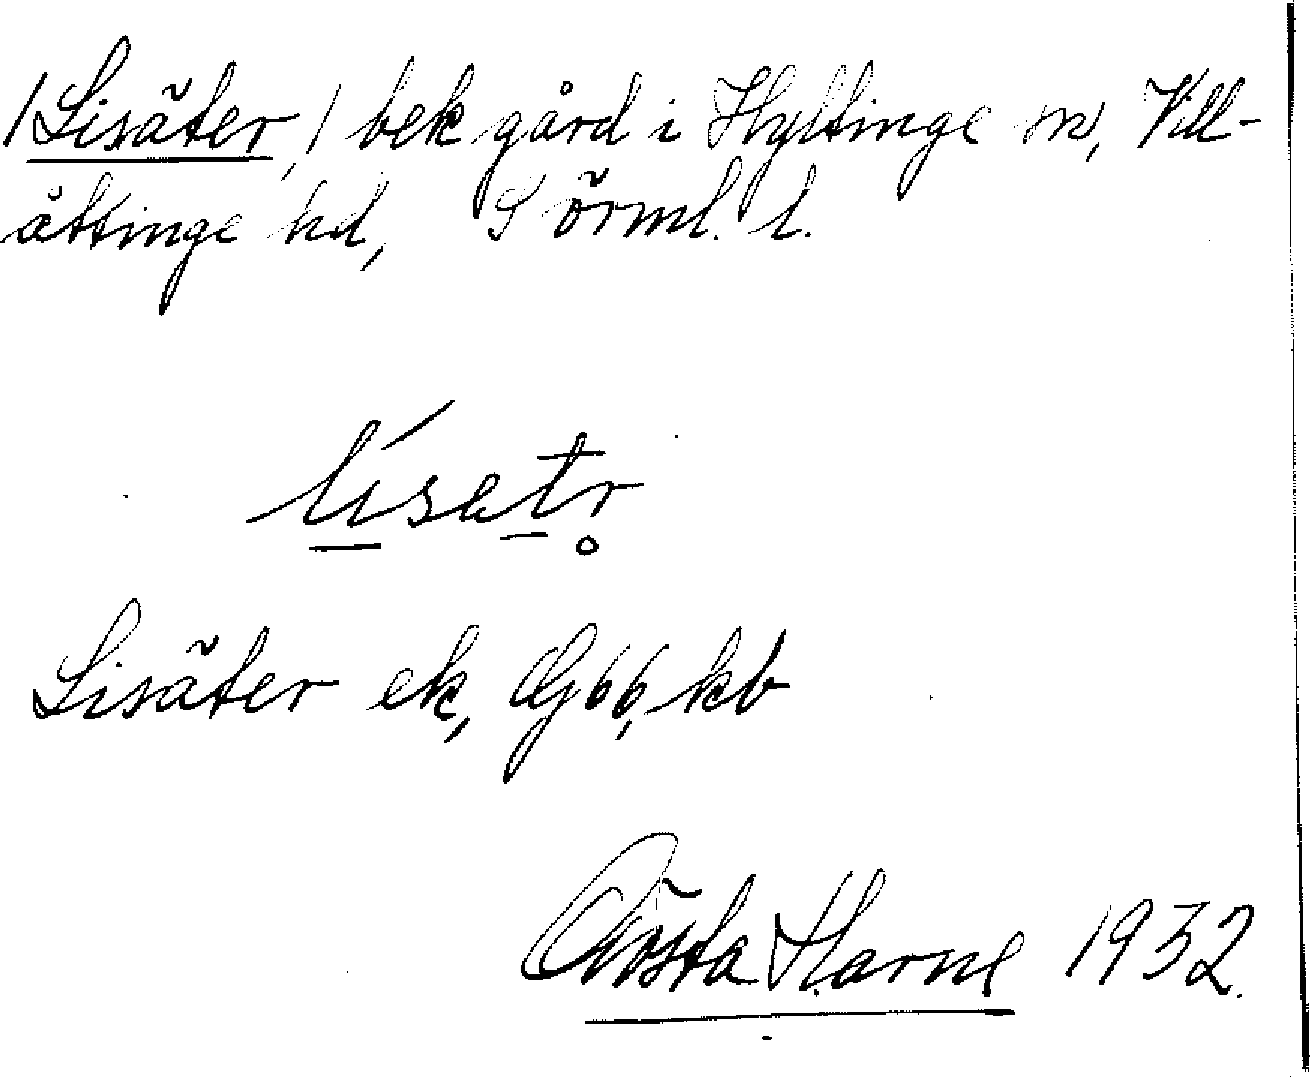 /Lisäter,/ bek gård i Hyltinge sn, Vill-
åttinge hd, Sörml. l.
lísatr̥
Lisäter ek, GJ 66, kb
Gösta Harne 1932.